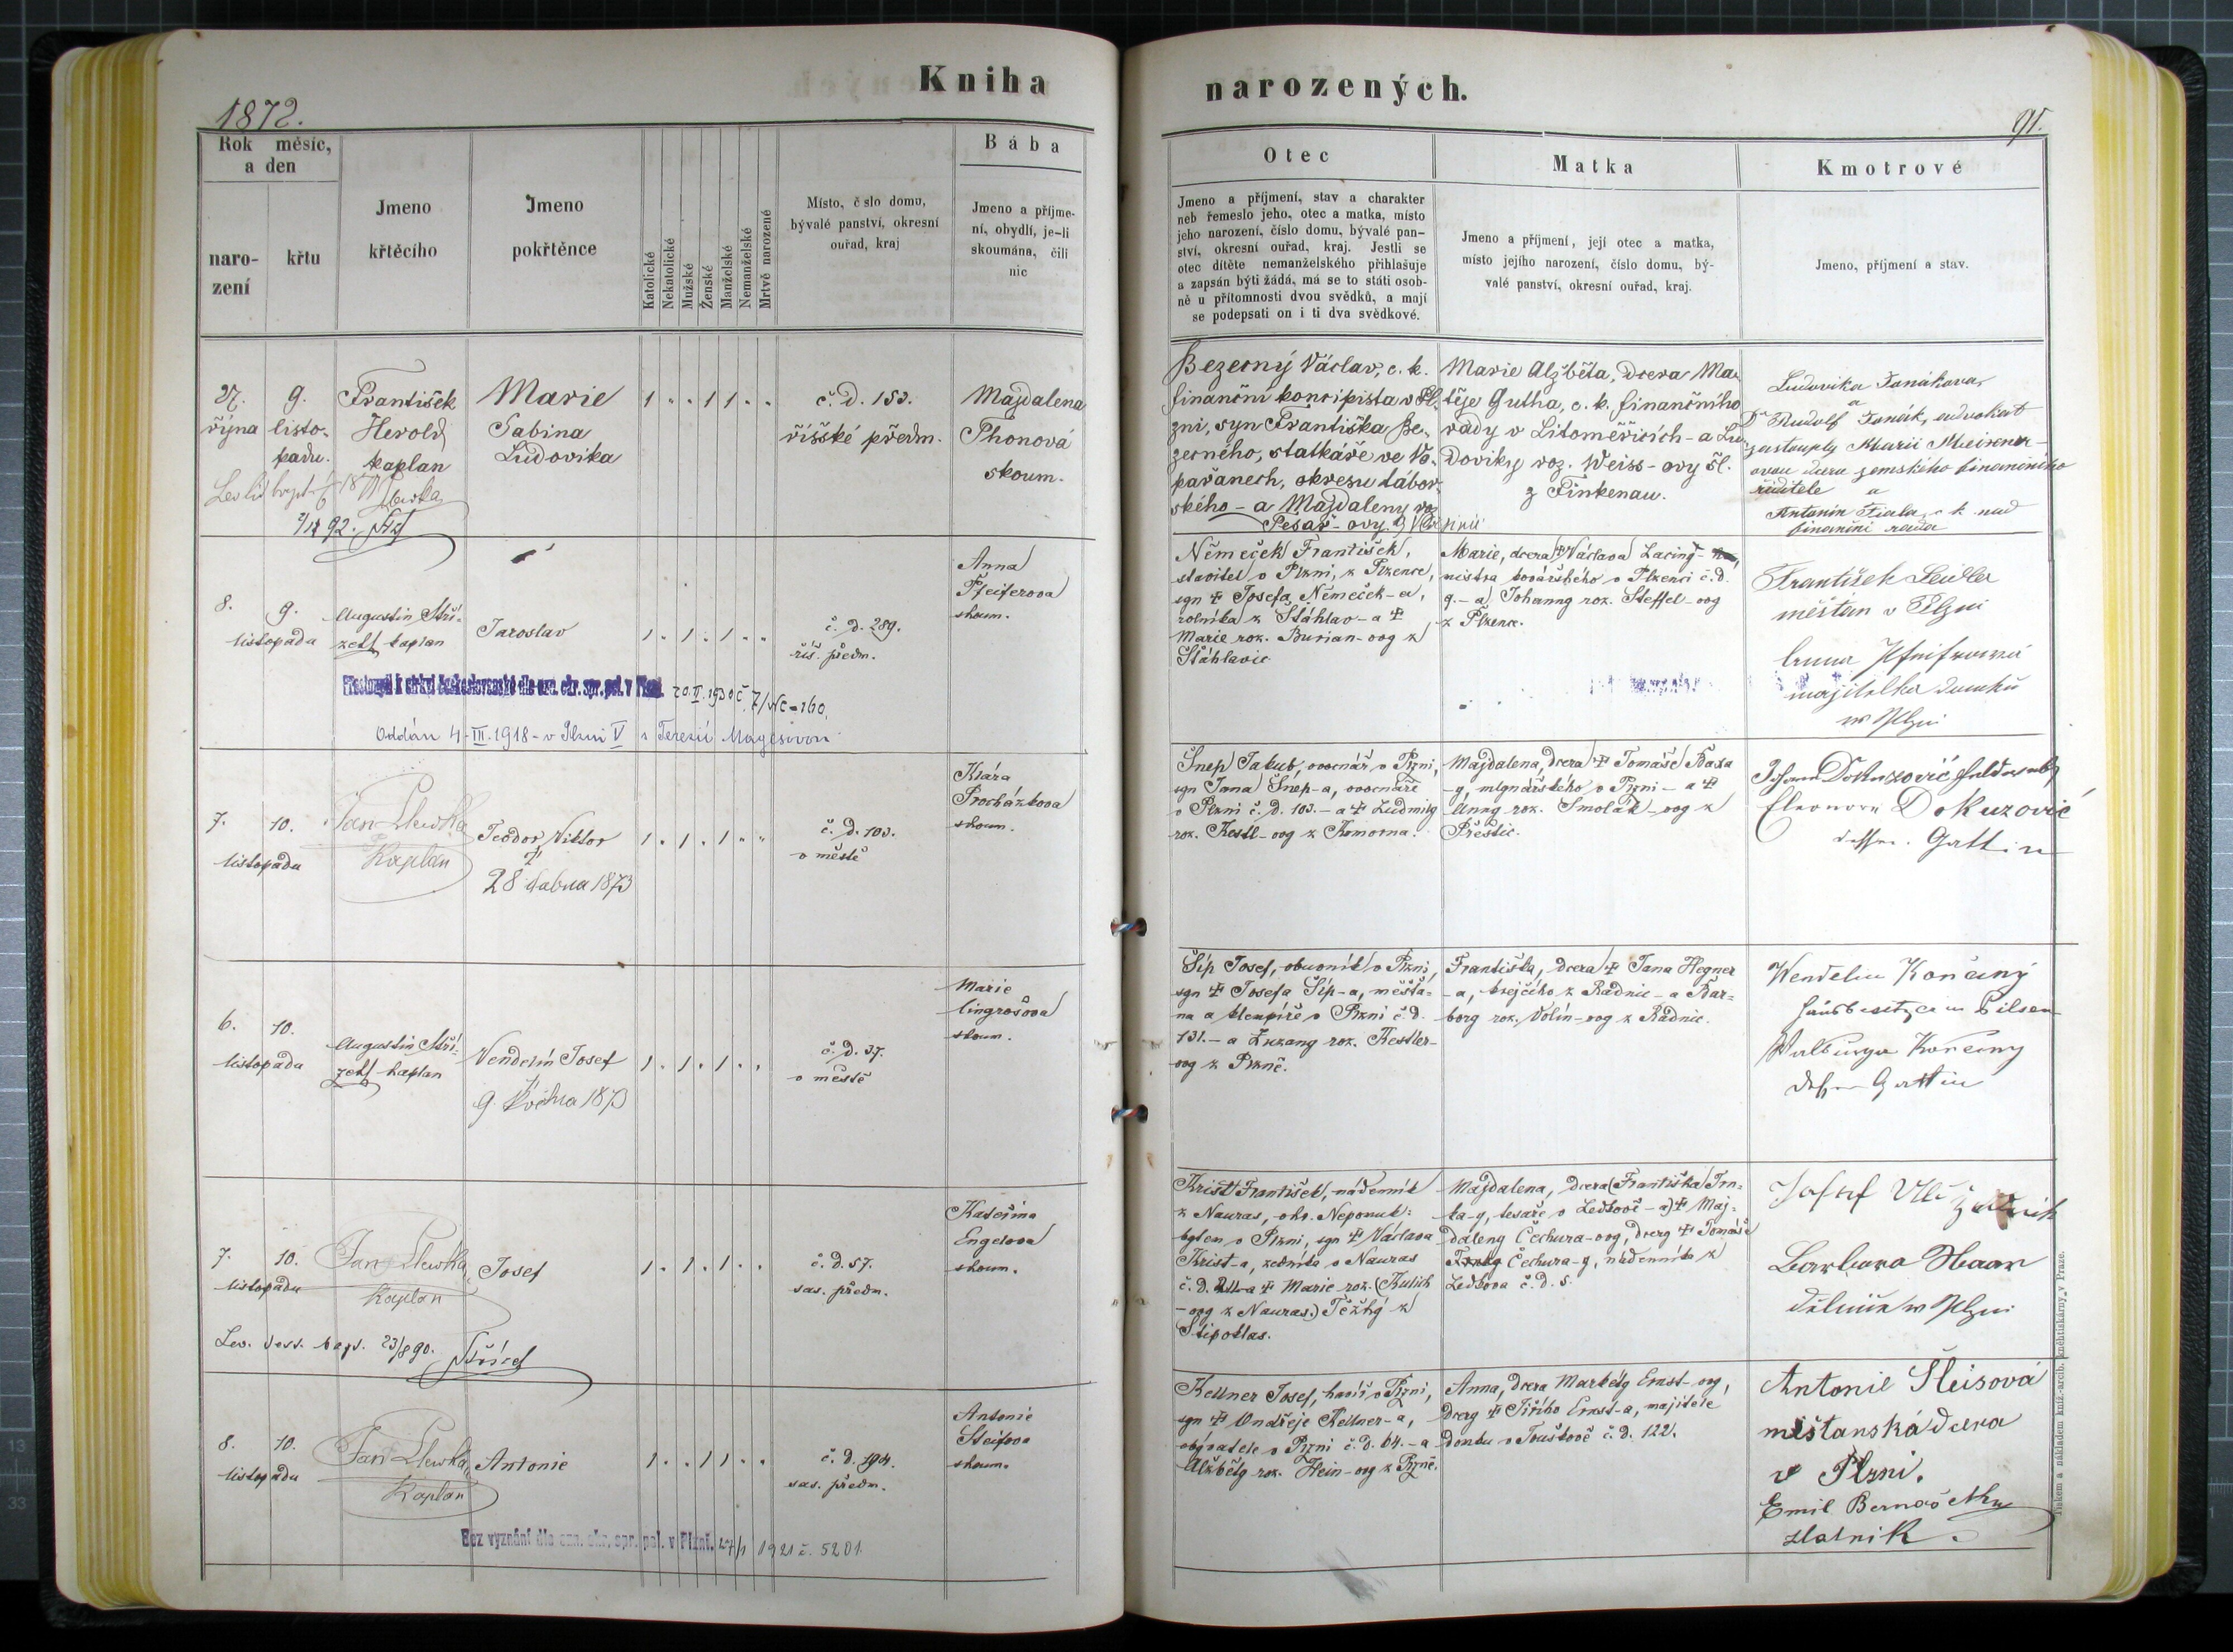 Kniha
narozených.
1872.
91.
Rok měsíc,
a den
naro-
zení
křtu
Jmeno
křtěcího
Jmeno
pokřtěnce
Katolické
Nekatolické
Mužské
Ženské
Manželské
Nemanželské
Mrtvě narozené
Místo, č slo domu,
bývalé panství, okresní
ouřad, kraj
Bába
Jmeno a příjme-
ní, obydlí, je-li
skoumána, čili
nic
Otec
Jmeno a příjmení, stav a charakter
neb řemeslo jeho, otec a matka, místo
jeho narození, číslo domu, bývalé pan-
ství, okresní ouřad, kraj. Jestli se
otec dítěte nemanželského přihlašuje
a zapsán býti žádá, má se to státi osob-
ně u přítomnosti dvou svědků, a mají
se podepsati on i ti dva svědkové.
Matka
Jmeno a příjmení, její otec a matka,
místo jejího narození, číslo domu, bý-
valé panství, okresní ouřad, kraj.
Kmotrové
Jmeno, příjmení a stav.
27.
října
9.
listo-
padu.
František
Herold
kaplan
Marie
Sabina
Ludovika
1 . . 1 1 . .
č. d. 153.
říšské předm.
Magdalena
Thonová
skoum.
2/12 92.
Bezecný Václav, c. k.
finanční koncipista v Pl-
zni, syn Františka Be-
zecného, statkáře ve Vo-
pařanech, okresu tábor-
ského - a Magdaleny roz.
Pesař-ovy z
Marie Alžběta, dcera Ma-
těje Gutha, c. k. finančního
rady v Litoměřicích - a Lu-
doviky roz. Weiss-ovy šl.
z Finkenau.
Ludovika Janákova
a
Dr Rudolf Janák, advokat
zastouply Marii
dcera zemského finančního
ředitele a
Antonin Fiala, c. k.
finanční rada
8.
9.
listopadu
Augustin Stří-
zek kaplan
Jaroslav
1 . 1 . 1 . .
č. d. 289.
říš. předm.
Anna
Pfeiferova
skoum.
Přestoupil k církvi československé dle ozn. okr. spr. pol. v Plzni 20.II.1930 č. 7/VC-160.
Oddán 4-III.1918- v Plzni V s Terezií
Němeček František,
stavitel v Plzni, z Plzence,
syn † Josefa Němeček-a,
rolníka z Štáhlav - a †
Marie roz. Burian-ovy z
Štáhlavic
Marie, dcera † Václava Lacing-
mistra kovářského v Plzenci č. d.
9. - a Johanny roz. Steffel-ovy
z Plzence.
František Seidler
měštan v Plzni
Anna
majitelka domku
w Plzni
7.
10.
listopadu
Jan Slewka
Kaplan
Teodor Viktor
†
28 dubna 1873
1 . 1 . 1 . .
č. d. 103.
v městě
Klára
Procházkova
skoum.
Šnep Jakub, ovocnář v Plzni,
syn Jana Šnep-a, ovocnáře
v Plzni č. d. 103. - a † Ludmily
roz. Kestl-ovy z Komorna.
Magdalena, dcera † Tomáše Baxa
-y, mlynářského v Plzni - a †
Anny roz. Smolák-ovy z
Přeštic.
Dokuzović
Eleonora Dokuzović
Gattin
6.
10.
listopadu
Augustin Stří-
zek kaplan
Vendelín Josef
†
9. května 1873
1 . 1 . 1 . .
č. d. 37.
v městě
Marie
Lingrošova
skoum.
Šíp Josef, obuvník v Plzni,
syn † Josefa Šíp-a, měšťa-
na a klempíře v Plzni č. d.
131. - a Zuzany roz. Kestler-
ovy z Plzně.
Františka, dcera † Jana Hegner
-a, krejčího z Radnic - a Bar-
bory roz. Volín-ovy z Radnic.
Wendelin Konečný
Hausbesitzer in Pilsen
Walburga Konečny
Gattin
7.
10.
listopadu
Jan Slewka
Kaplan
Josef
1 . 1 . 1 . .
č. d. 57.
sas. předm.
Kateřina
Engelova
skoum.
Lev. test. bapt. 23/8 90. Střízek
Krist František, nádenník
z Nauras, okr. Nepomuk:
bytem v Plzni, syn † Václava
Krist-a, zedníka v Nauras
č. d. - a † Marie roz. (Kulich
-ovy z Nauras.) Těžký z
Štipoklas.
Magdalena, dcera (Františka) Trn-
ka-y, tesaře v Ledkově - a) † Mag-
daleny Čechura-ovy, dcery † Tomáše
Čechura-y, nádenníka z
Ledkova č. d. 5.
Josef
Barbara Haar
w Plzni
8.
10.
listopadu
Jan Slewka
Kaplan
Antonie
1 . . 1 1 . .
č. d. 194.
sas. předm.
Antonie
Steifova
skoum.
Bez vyznání dle ozn. okr. spr. pol. v Plzni. 27/1 1921 č. 5201.
Kellner Josef, havíř v Plzni,
syn † Ondřeje Kellner-a,
obyvatele v Plzni č. d. 64. - a
Alžběty roz. Hein-ovy z Plzně.
Anna, dcera Markéty Ernst-ovy,
dcery † Jiřího Ernst-a, majitele
domku v Touškově č. d. 122.
Antonie Šleisová
měštanská dcera
v Plzni.
Emil Bernášek
zlatnik.
Tiskem a nákladem kníž.-arcib. knihtiskárny v Praze.